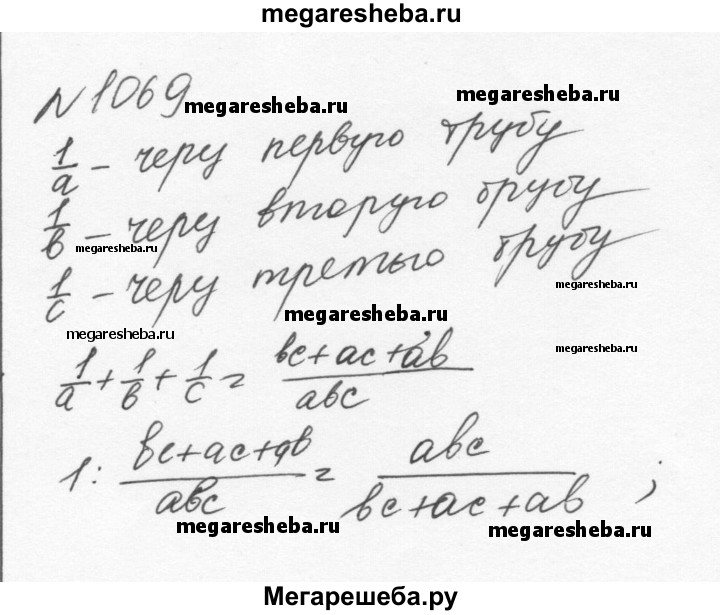 megaresheba.ru
N 1069
megaresheba.ru
megaresheba.ru
1/a – черу первую трубу
1/в – черу вторую трубу
megaresheba.ru
1/c – черу третью трубу
megaresheba.ru
megaresheba.ru
megaresheba.ru
megaresheba.ru
1/a + 1/в + 1/c = (вc+ac+aв)/(aвc)
1 : (вc+ac+aв)/(aвc) = (aвc)/(вc+ac+aв) ;
megaresheba.ru
megaresheba.ru
Мегарешеба.ру